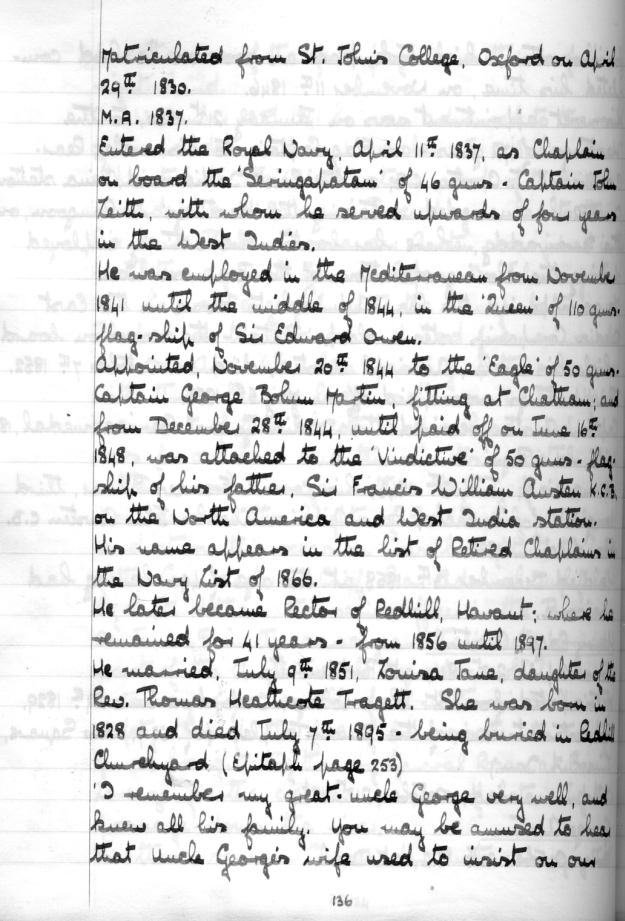 Matriculated from St. John's College, Oxford on April
29th 1830.
M.A. 1837.
Entered the Royal Navy, April 11th 1837, as Chaplain
on board the 'Seringapatam' of 46 guns - Captain John
Leith, with whom he served upwards of four years
in the West Indies.
He was employed in the Mediterranean from Novembe
1841 until the middle of 1844, in the 'Queen' of 110 guns-
flag-ship of Sir Edward Owen.
Appointed, November 20th 1844 to the 'Eagle' of 50 guns-
Captain George Bohun Martin, fitting at Chatham; and
from December 28th 1844, until paid off on June 16th
1848, was attached to the 'Vindictive' of 50 guns - flag-
ship of his father, Sir Francis William Austen K.C.B,
on the North America and West India station.
His name appears in the list of Retired Chaplains in
the Navy List of 1866.
He later became Rector of Redhill, Havant; where he
remained for 41 years - from 1856 until 1897.
He married, July 9th 1851, Louisa Jane, daughter of the
Rev. Thomas Heathcote Tragett. She was born in
1828 and died July 7th 1895 - being buried in Redhill
Churchyard (Epitaph page 253)
'I remember my great-uncle George very well, and
knew all his family. You may be amused to hea
that Uncle George's wife used to insist on our
136